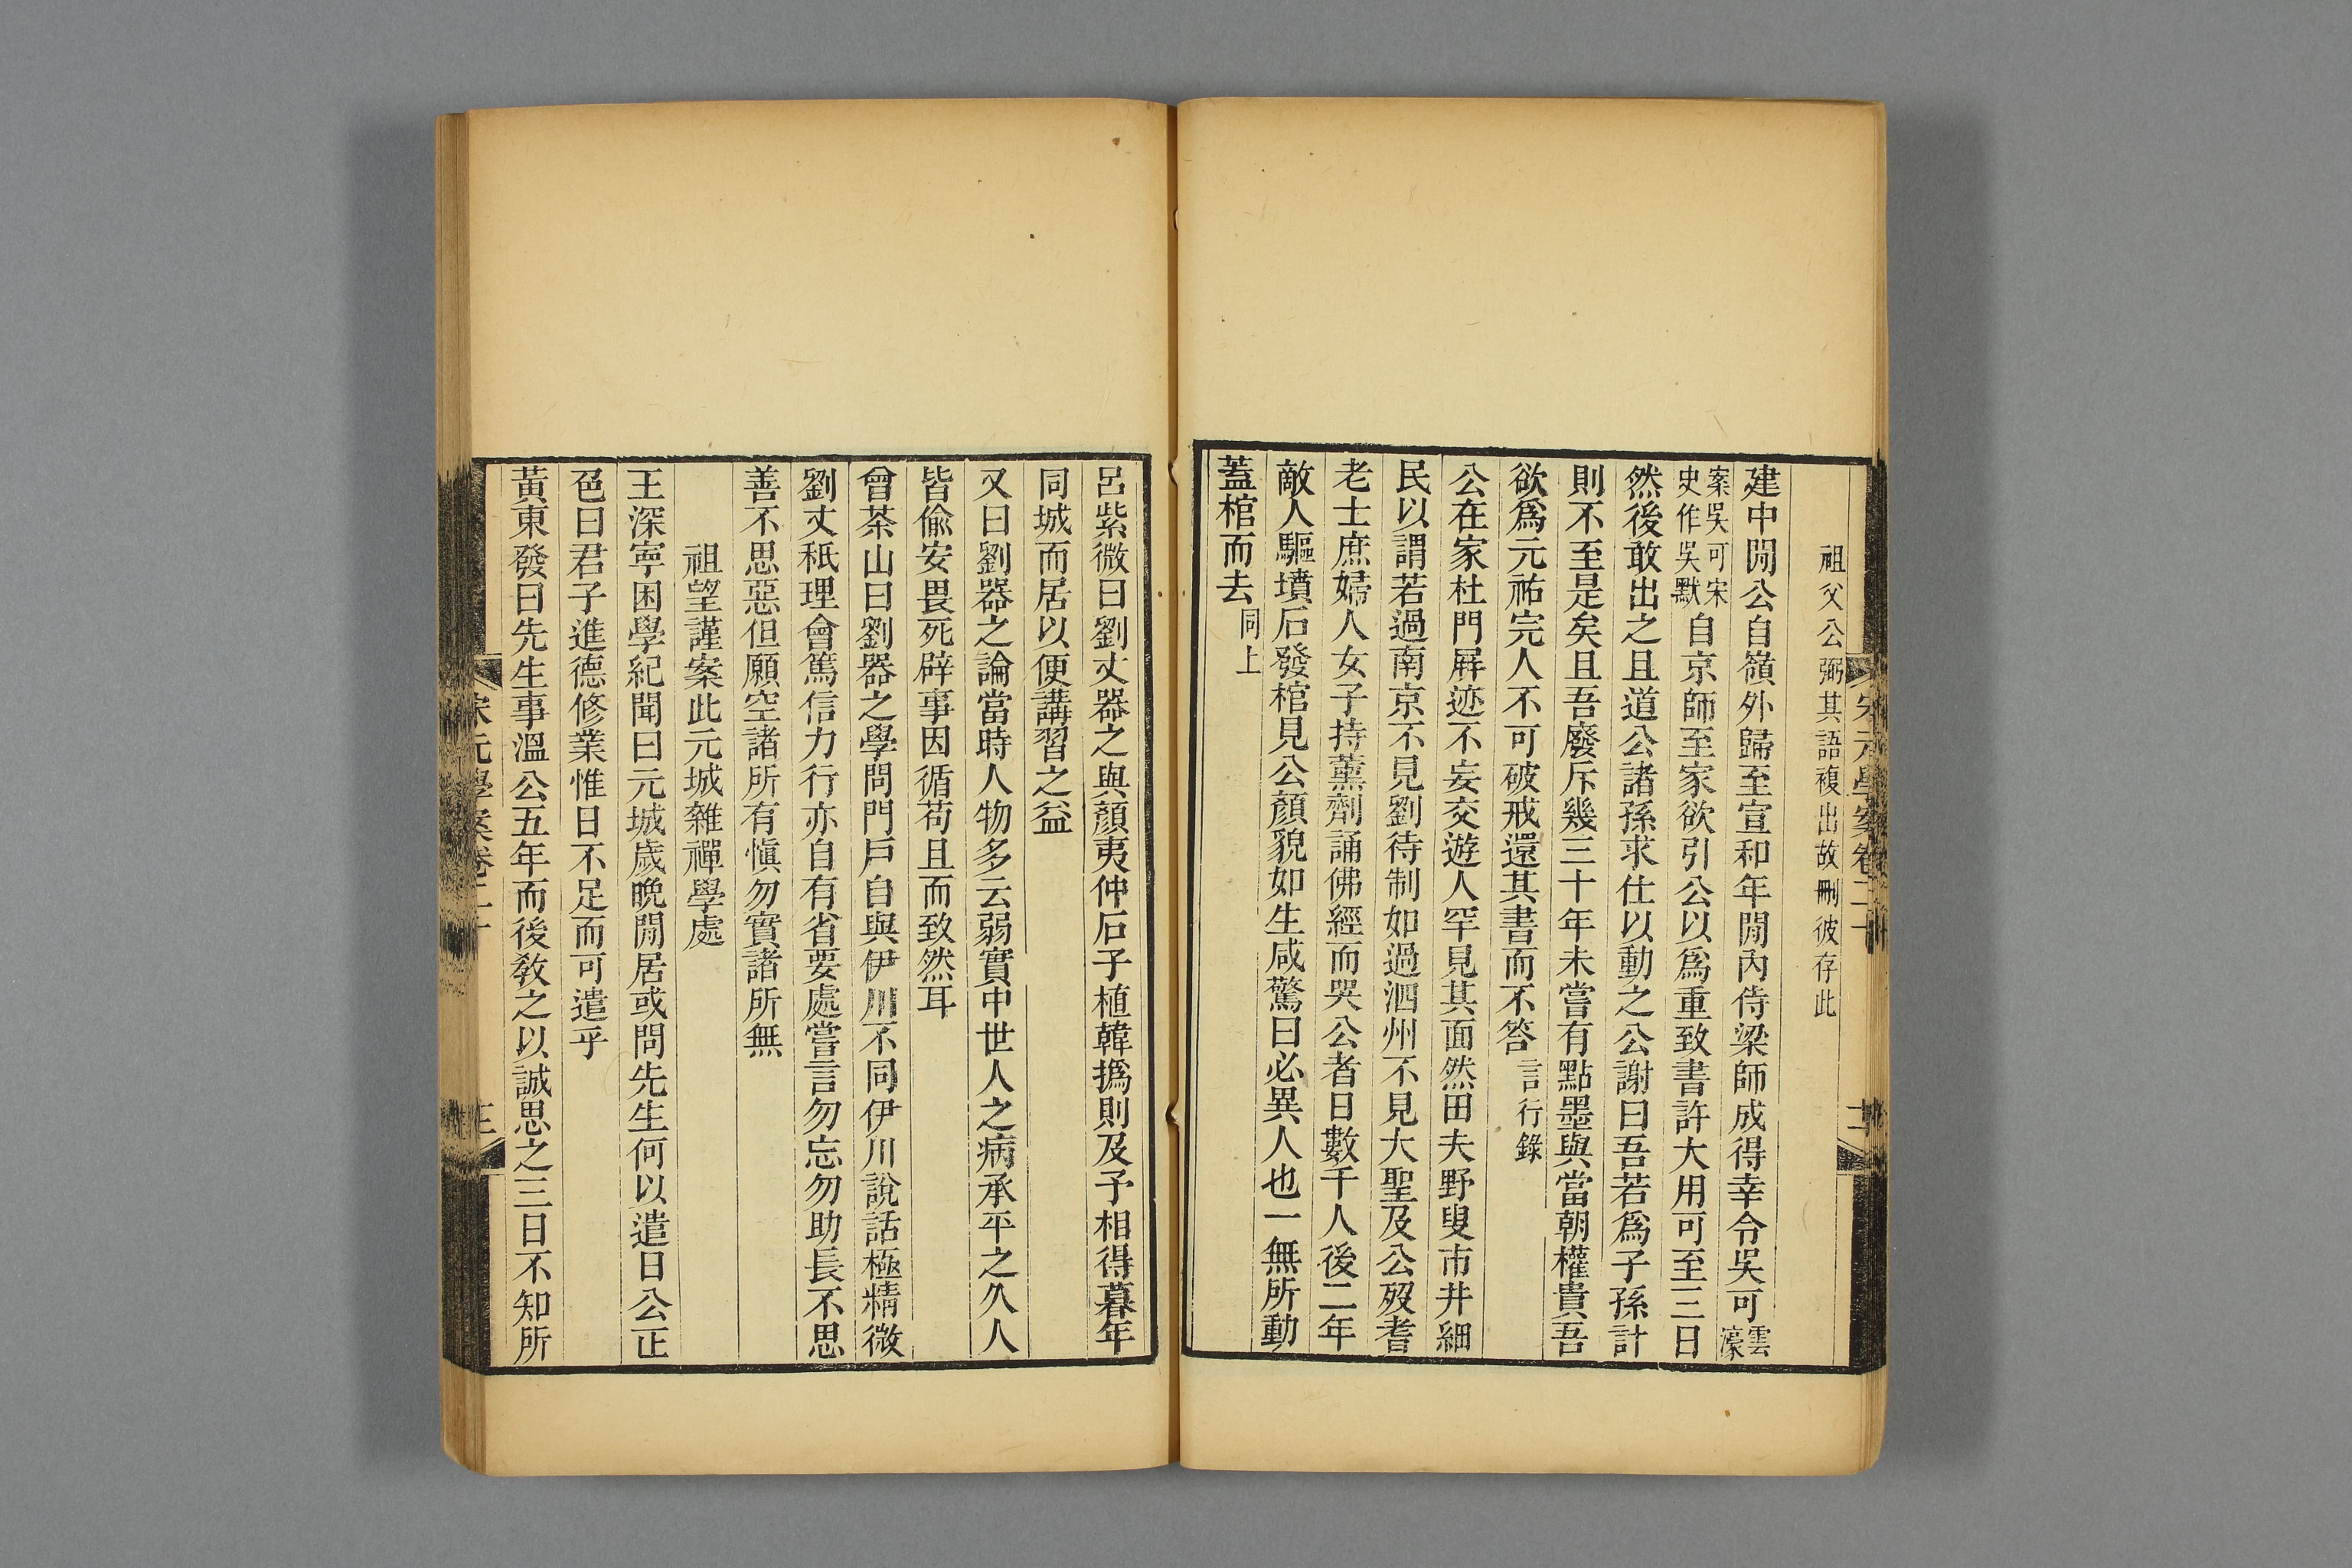 祖父公弼其語複出故刪彼存此
建中閒公自嶺外歸至宣和年閒內侍梁師成得幸令吳可雲濠
案吳可宋史作吳默自京師至家欲引公以爲重致書許大用可至三日
然後敢出之且道公諸孫求仕以動之公謝曰吾若爲子孫計
則不至是矣且吾廢斥幾三十年未嘗有點墨與當朝權貴吾
欲爲元祐完人不可破戒還其書而不答言行錄
公在家杜門屛迹不妄交遊人罕見其面然田夫野叟市井細
民以謂若過南京不見劉待制如過泗州不見大聖及公歿耆
老士庶婦人女子持薰劑誦佛經而哭公者日數千人後二年
敵人驅墳后發棺見公顏貌如生咸驚曰必異人也一無所動
蓋棺而去同上
宋元學案卷二十
呂紫微曰劉丈器之與顏夷仲后子植韓撝則及予相得暮年
同城而居以便講習之益
又曰劉器之論當時人物多云弱實中世人之病承平之久人
皆偷安畏死辟事因循苟且而致然耳
曾茶山曰劉器之學問門戶自與伊川不同伊川說話極精微
劉丈秖理會篤信力行亦自有省要處嘗言勿忘勿助長不思
善不思惡但願空諸所有愼勿實諸所無
祖望謹案此元城雜禪學處
王深寧困學紀聞曰元城歲晚閒居或問先生何以遣日公正
色曰君子進德修業惟日不足而可遣乎
黃東發曰先生事溫公五年而後敎之以誠思之三日不知所
宋元學案卷二十